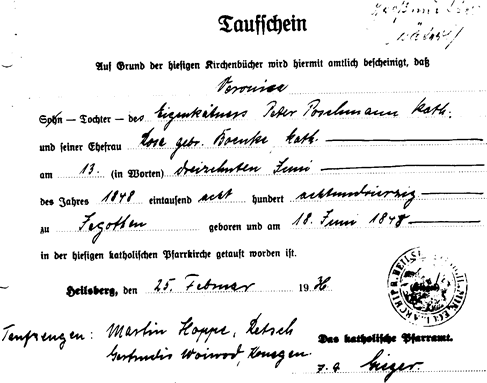 Taufschein
Auf Grund der hiesigen Kirchenbücher wird hiermit amtlich bescheinigt, daß
Veronica
Sohn — Tochter — des Eigenkätners Peter Poschmann kath.
und seiner Ehefrau Rosa gebr. Boenke kath.
am 13. (in Worten) dreizehnten Juni
des Jahres 1848 eintausend acht hundert achtundvierzig
zu Jegothen geboren und am 18. Juni 1848
in der hiesigen katholischen Pfarrkirche getauft worden ist.
Heilsberg, den 25. Februar 19
Taufzeugen: Martin Hoppe, Retsch
Gertrudis Woiwod, Konegen
Das katholische Pfarramt.